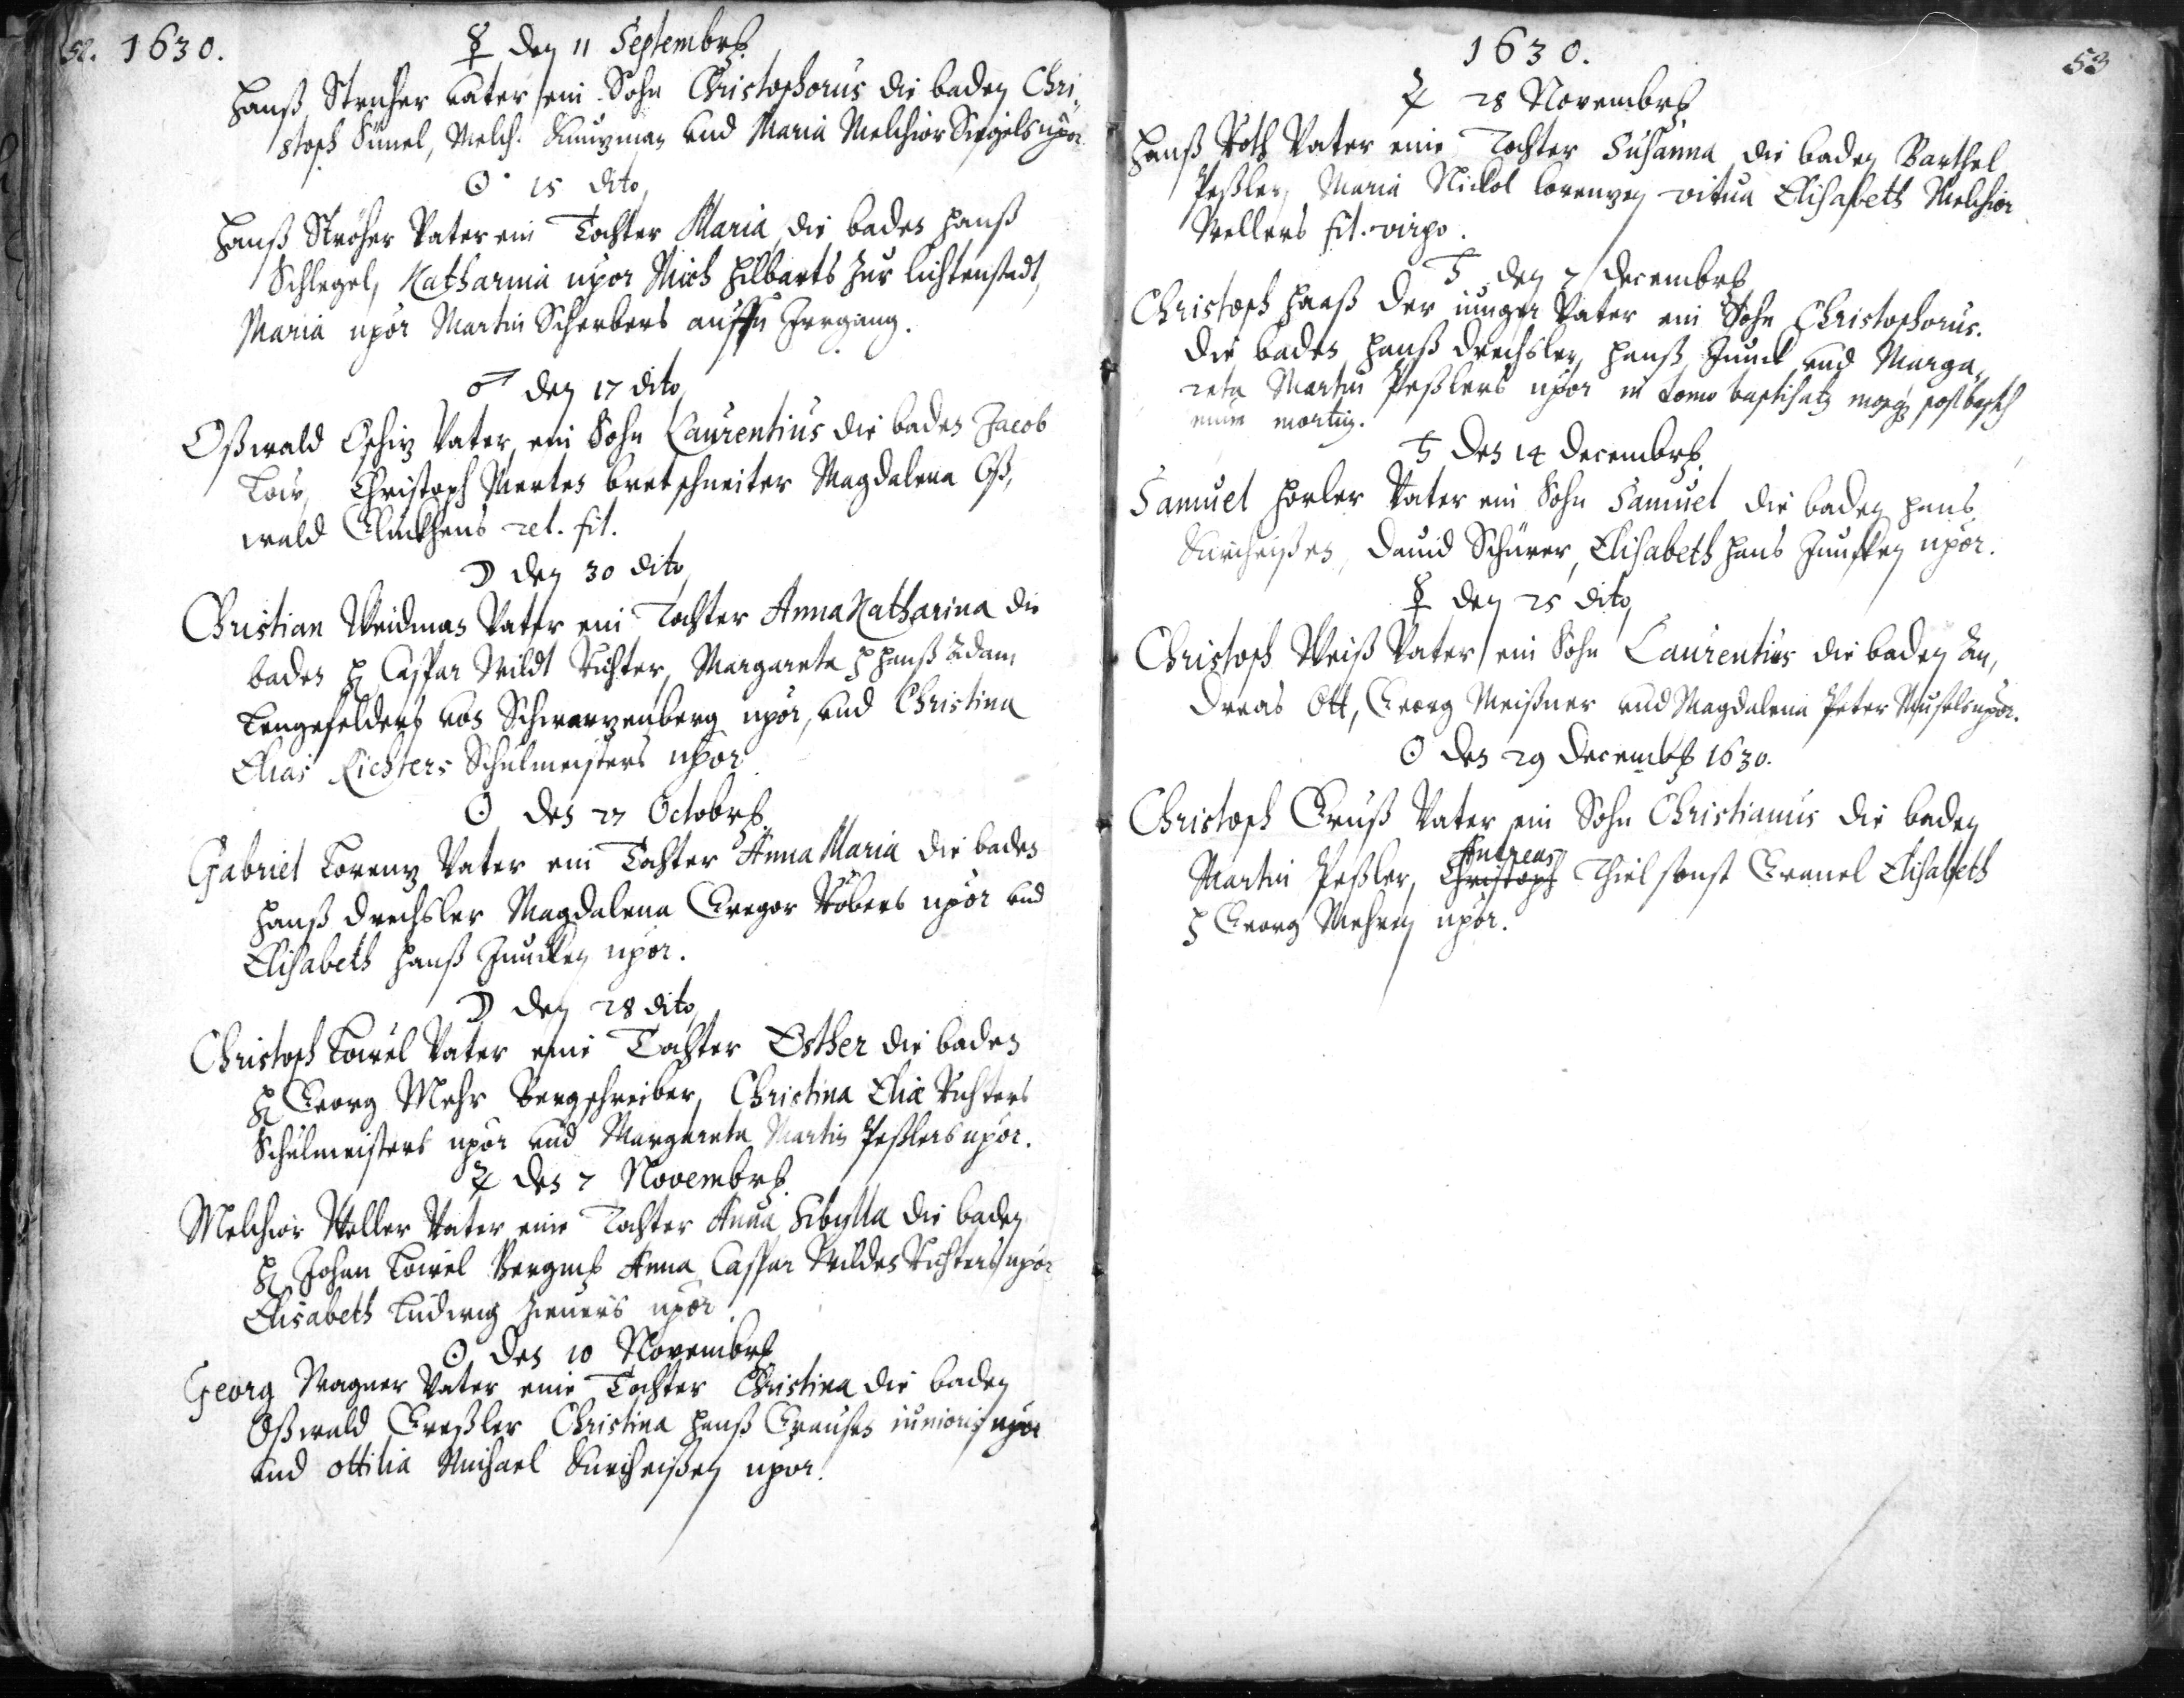 52. 1630.
☿ den 11 Septembrß
Hanß Ströher Vater ein Sohn Christophorus die baden Chri„
stoph Sünel, Melch. Kuntzman vnd Maria Melchior Siegels uxor
☉ 15 dito
Hanß Ströher Vater ein Tochter Maria die baden Hanß
Schlegel, Katharina uxor Mich Hilberts zur lichtenstadt,
Maria uxor Martin Scherbers auffn Irrgang.
♂ den 17 dito
Oßwald Vater ein Sohn Laurentius die baden Jacob
Christoph Mertes bretschneiter Magdalena Oß,
wald rel. fil.
☽ den 30 dito
Christian Weidman Vater ein Tochter Anna Katharina die
baden H Caspar Wildt Richter, Margareta H Hanß Adam
Lengefelders von Schwarzenberg uxor, vnd Christina
Elias Richters Schulmeisters uxor
☉ den 27 Octobrß
Gabriel Lorenz Vater ein Tochter Anna Maria die baden
Hanß Drechsler Magdalena Gregor Röbers uxor vnd
Elisabeth Hanß Juncken uxor.
☽ den 28 dito
Christoph Löwel Vater eine Tochter Esther die baden
H Georg Mehr Bergschreiber, Christina Eliæ Richters
Schulmeisters uxor vnd Margareta Martin Peßlers uxor.
♃ den 7 Novembrß.
Melchior Weller Vater eine Tochter Anna Sibylla die baden
H Johan Löwel Bergmß Anna Caspar Wildes Richters uxor
Elisabeth Ludwig uxor
☉ den 10 Novembrß
Georg Wagner Vater eine Tochter Christina die baden
Oßwald Greßler Christina Hanß Crauses iunioris uxor
vnd Ottilia Michael uxor.
1630. 53
♃ 28 Novembrß
Hanß Roth Vater eine Tochter Susanna die baden Barthel
Peßler, Maria Nickol lorenzen vitua Elisabeth Melchior
Wellers fil. virgo.
♄ den 7 Decembrß
Christoph Haaß der iunger Vater ein Sohn Christophorus.
die baden Hanß Drechsler, Hanß Junck vnd Marga„
reta Martin Peßlers uxor in domo
♄ den 14 Decembrß.
Samuel Horler Vater ein Sohn Samuel die baden Hans
David Schürer, Elisabeth Hans Juncken uxor.
☿ den 25 dito
Christoph Weiß Vater ein Sohn Laurentius die baden An,
dreas Ott, Georg Meißner vnd Magdalena Peter uxor.
☉ den 29 Decembß 1630.
Christoph Vater ein Sohn Christianus die baden
Andreas
Martin Peßler, Christoph Thiel sonst Elisabeth
H Georg Mehren uxor.